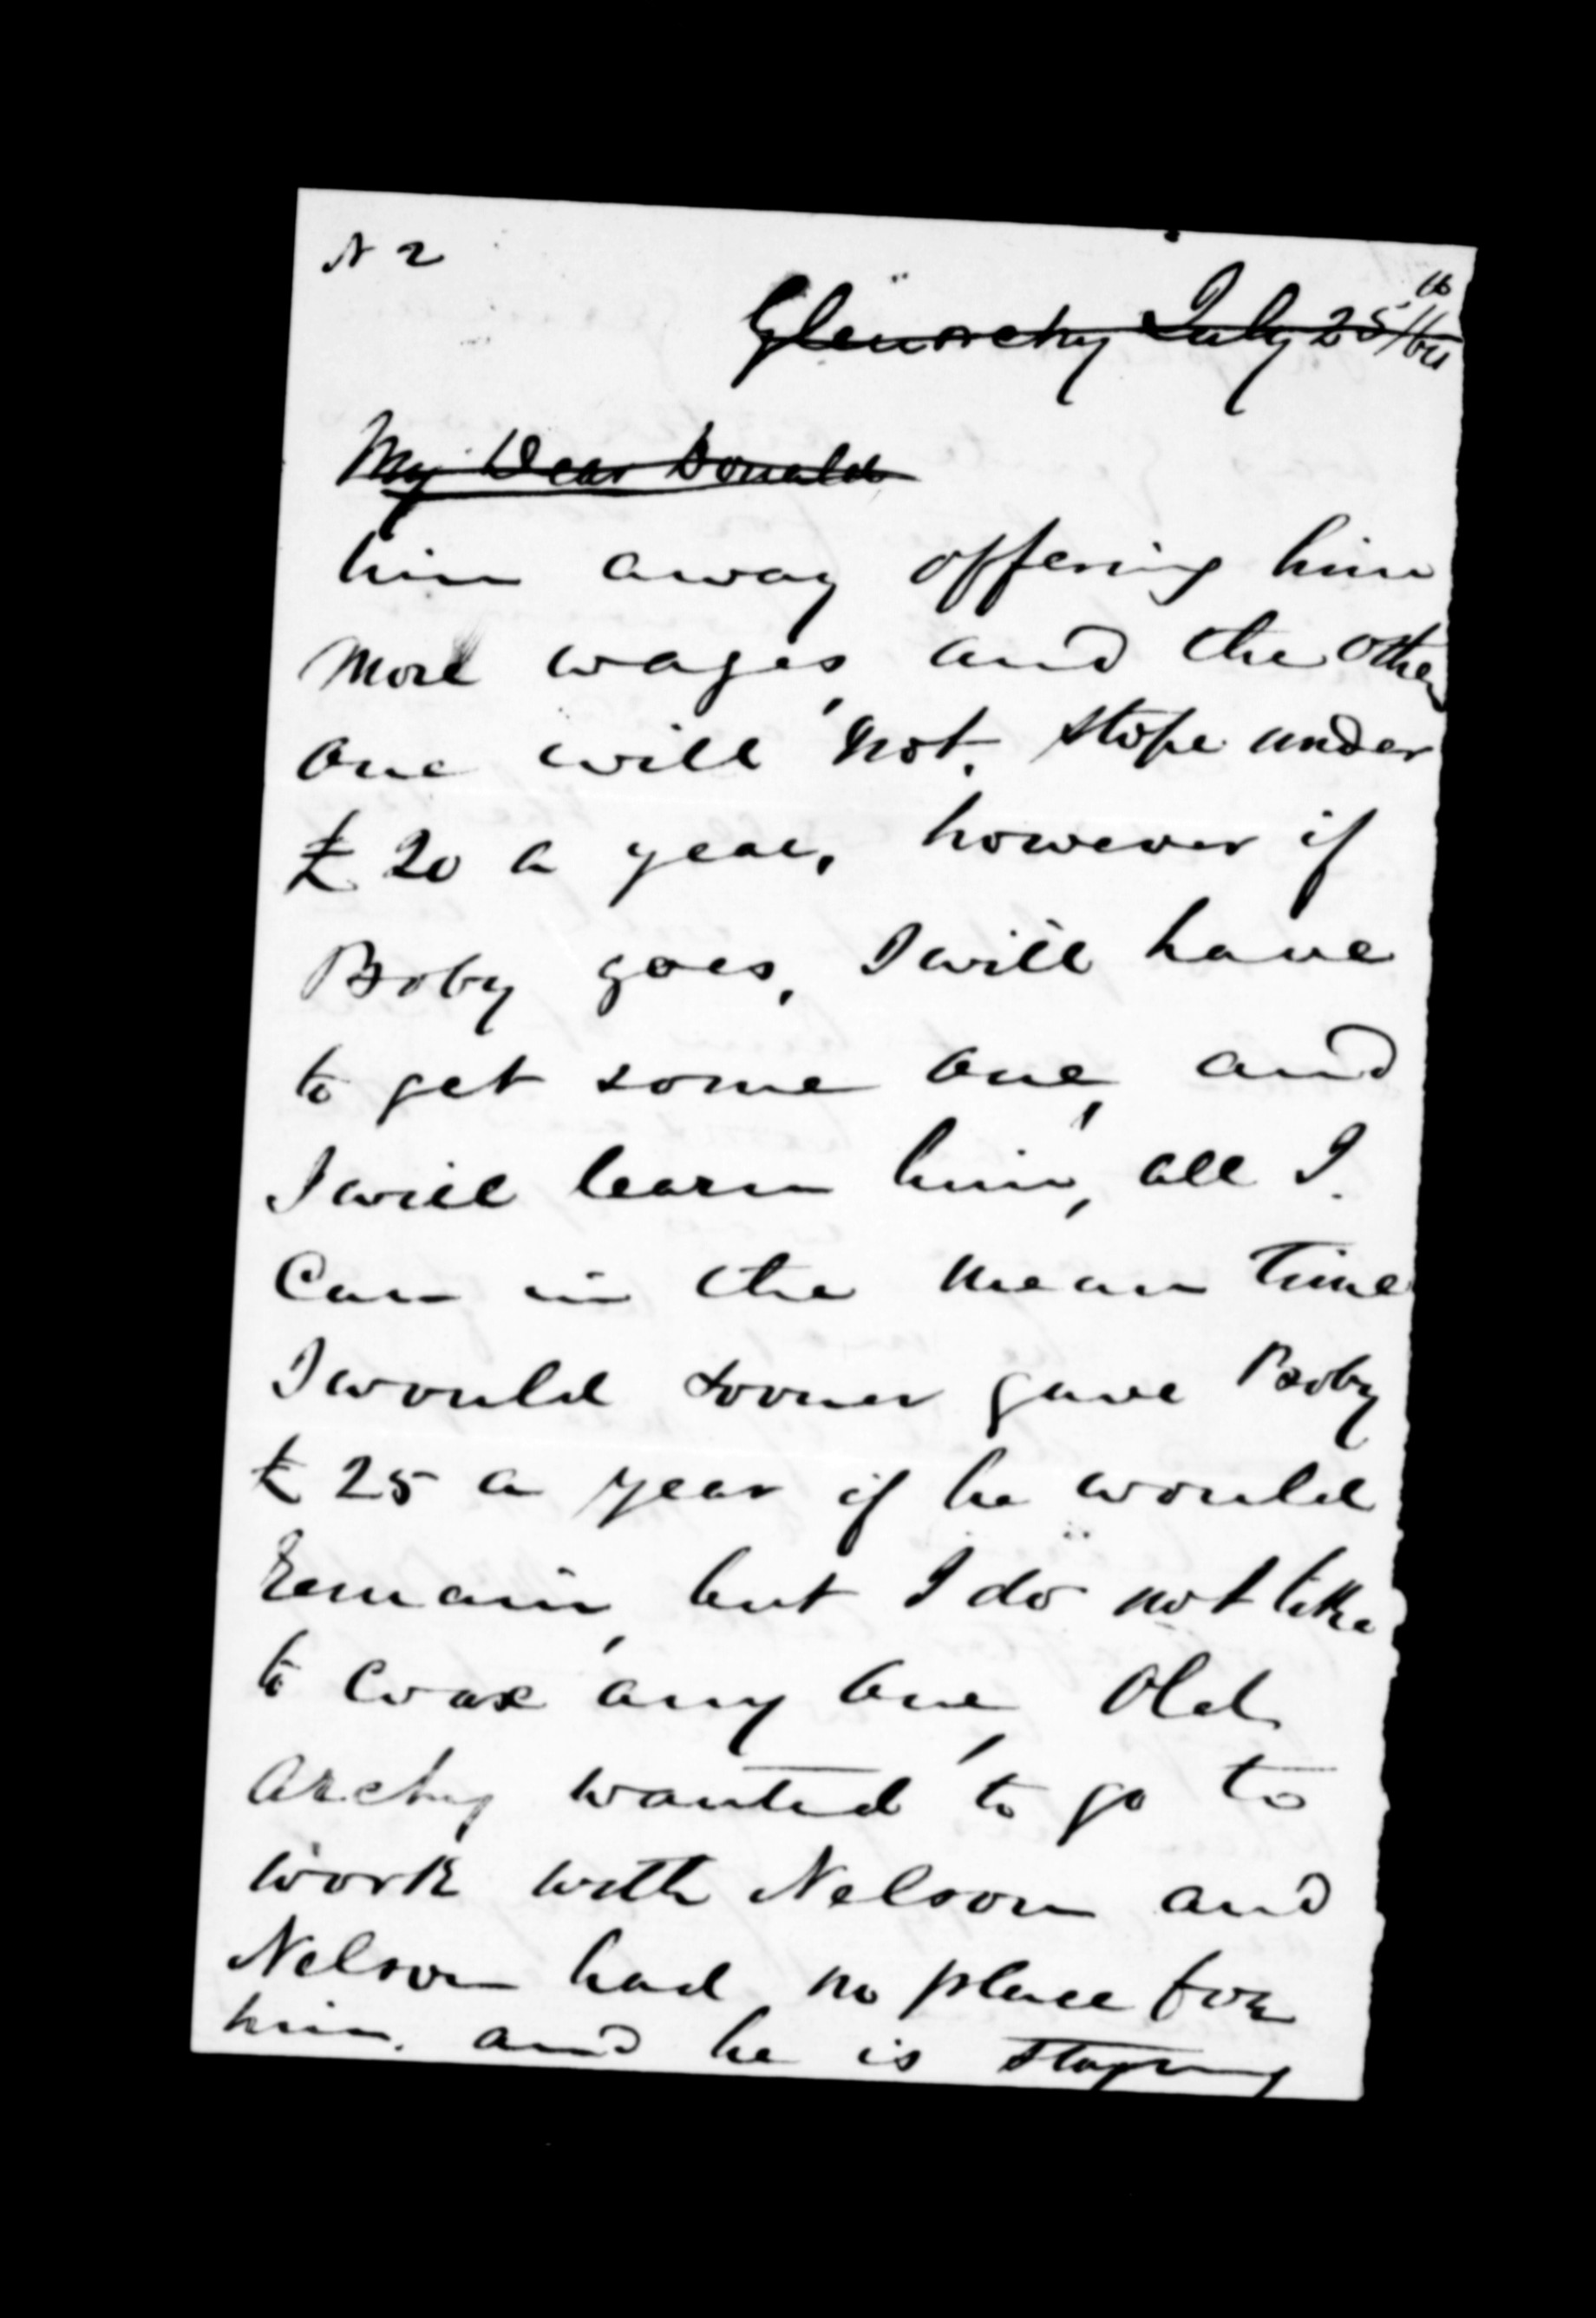 N 2
Glenorchy July 25th/64
My Dear Donald
him away offering him
more wages, and the other
one will not. stope under
£20 a year, however if
Boby goes, I will have
to get some one, and
I will learn him, all I
Can in the mean time
I would sooner gave Boby
£25 a year if he would
Remain, but I do not like
to coax any one, Old
Archy wanted to go to
work with Nelson and
Nelson had no place for
him. and he is stoping